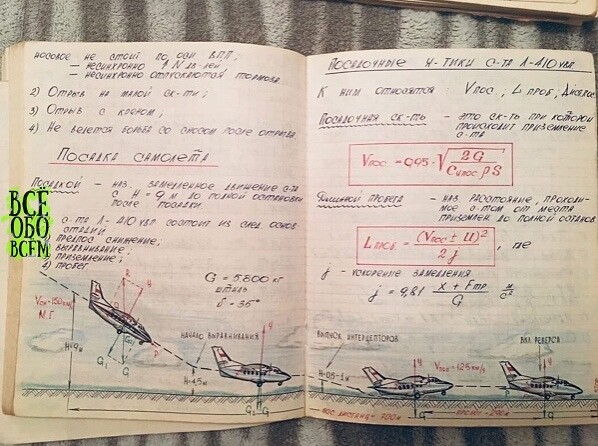 носовое не стоит по оси ВПП;
— несинхронно ↑ N дв-лей
— несинхронно отпускаются тормоза.
2) Отрыв на малой ск-ти;
3) Отрыв с креном;
4) Не ведется борьба со сносом после отрыва.
Посадка самолета
Посадкой — наз. замедленное движение с-та
с H = 9 м до полной остановки
после посадки.
с-та Л-410 УВП состоит из след. основ.
стадий:
предпос снижение;
выравнивание;
приземление;
4) пробег
G = 5.800 кг
штиль
δ = 35°
ВСЕ
ОБО
ВСЕМ
М.Г.
H=9м
G₁
G
начало выравнивания
H=4,5м
G
Посадочные х-тики с-та Л-410 УВП.
К ним относятся: Vпос, Lпроб,
Посадочная ск-ть — это ск-ть при которой
происходит приземление
с-та
Vпос = 0,95 · √ 2G / Cупос ρS
Длиной пробега — наз. расстояние, проходи-
мое с-том от места
приземлен. до полной останов.
Lпроб. = (Vпос ± U)² / 2j , где
j — ускорение замедления
j = 9,81 X + Fтр / G м/с²
выпуск интерцепторов
вкл. реверса
Vпос = 125 км/ч
G
G